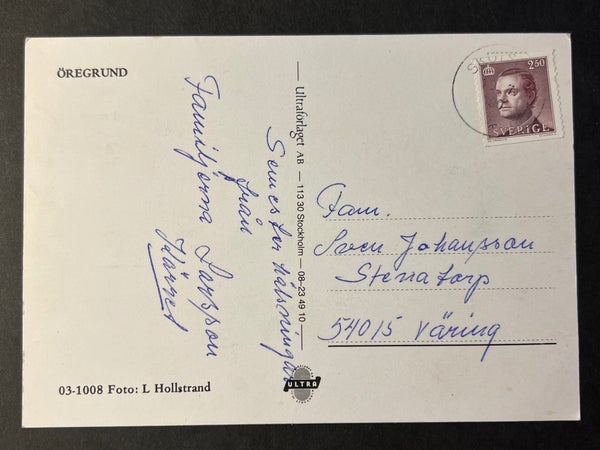 ÖREGRUND
Semesterhälsningar
från
Familjerna Larsson
Ultraförlaget AB — 113 30 Stockholm — 08-23 49 10
ULTRA
2.50
SVERIGE
Fam.
Sven Johansson
Stenatorp
54015 Väring
03-1008 Foto: L Hollstrand